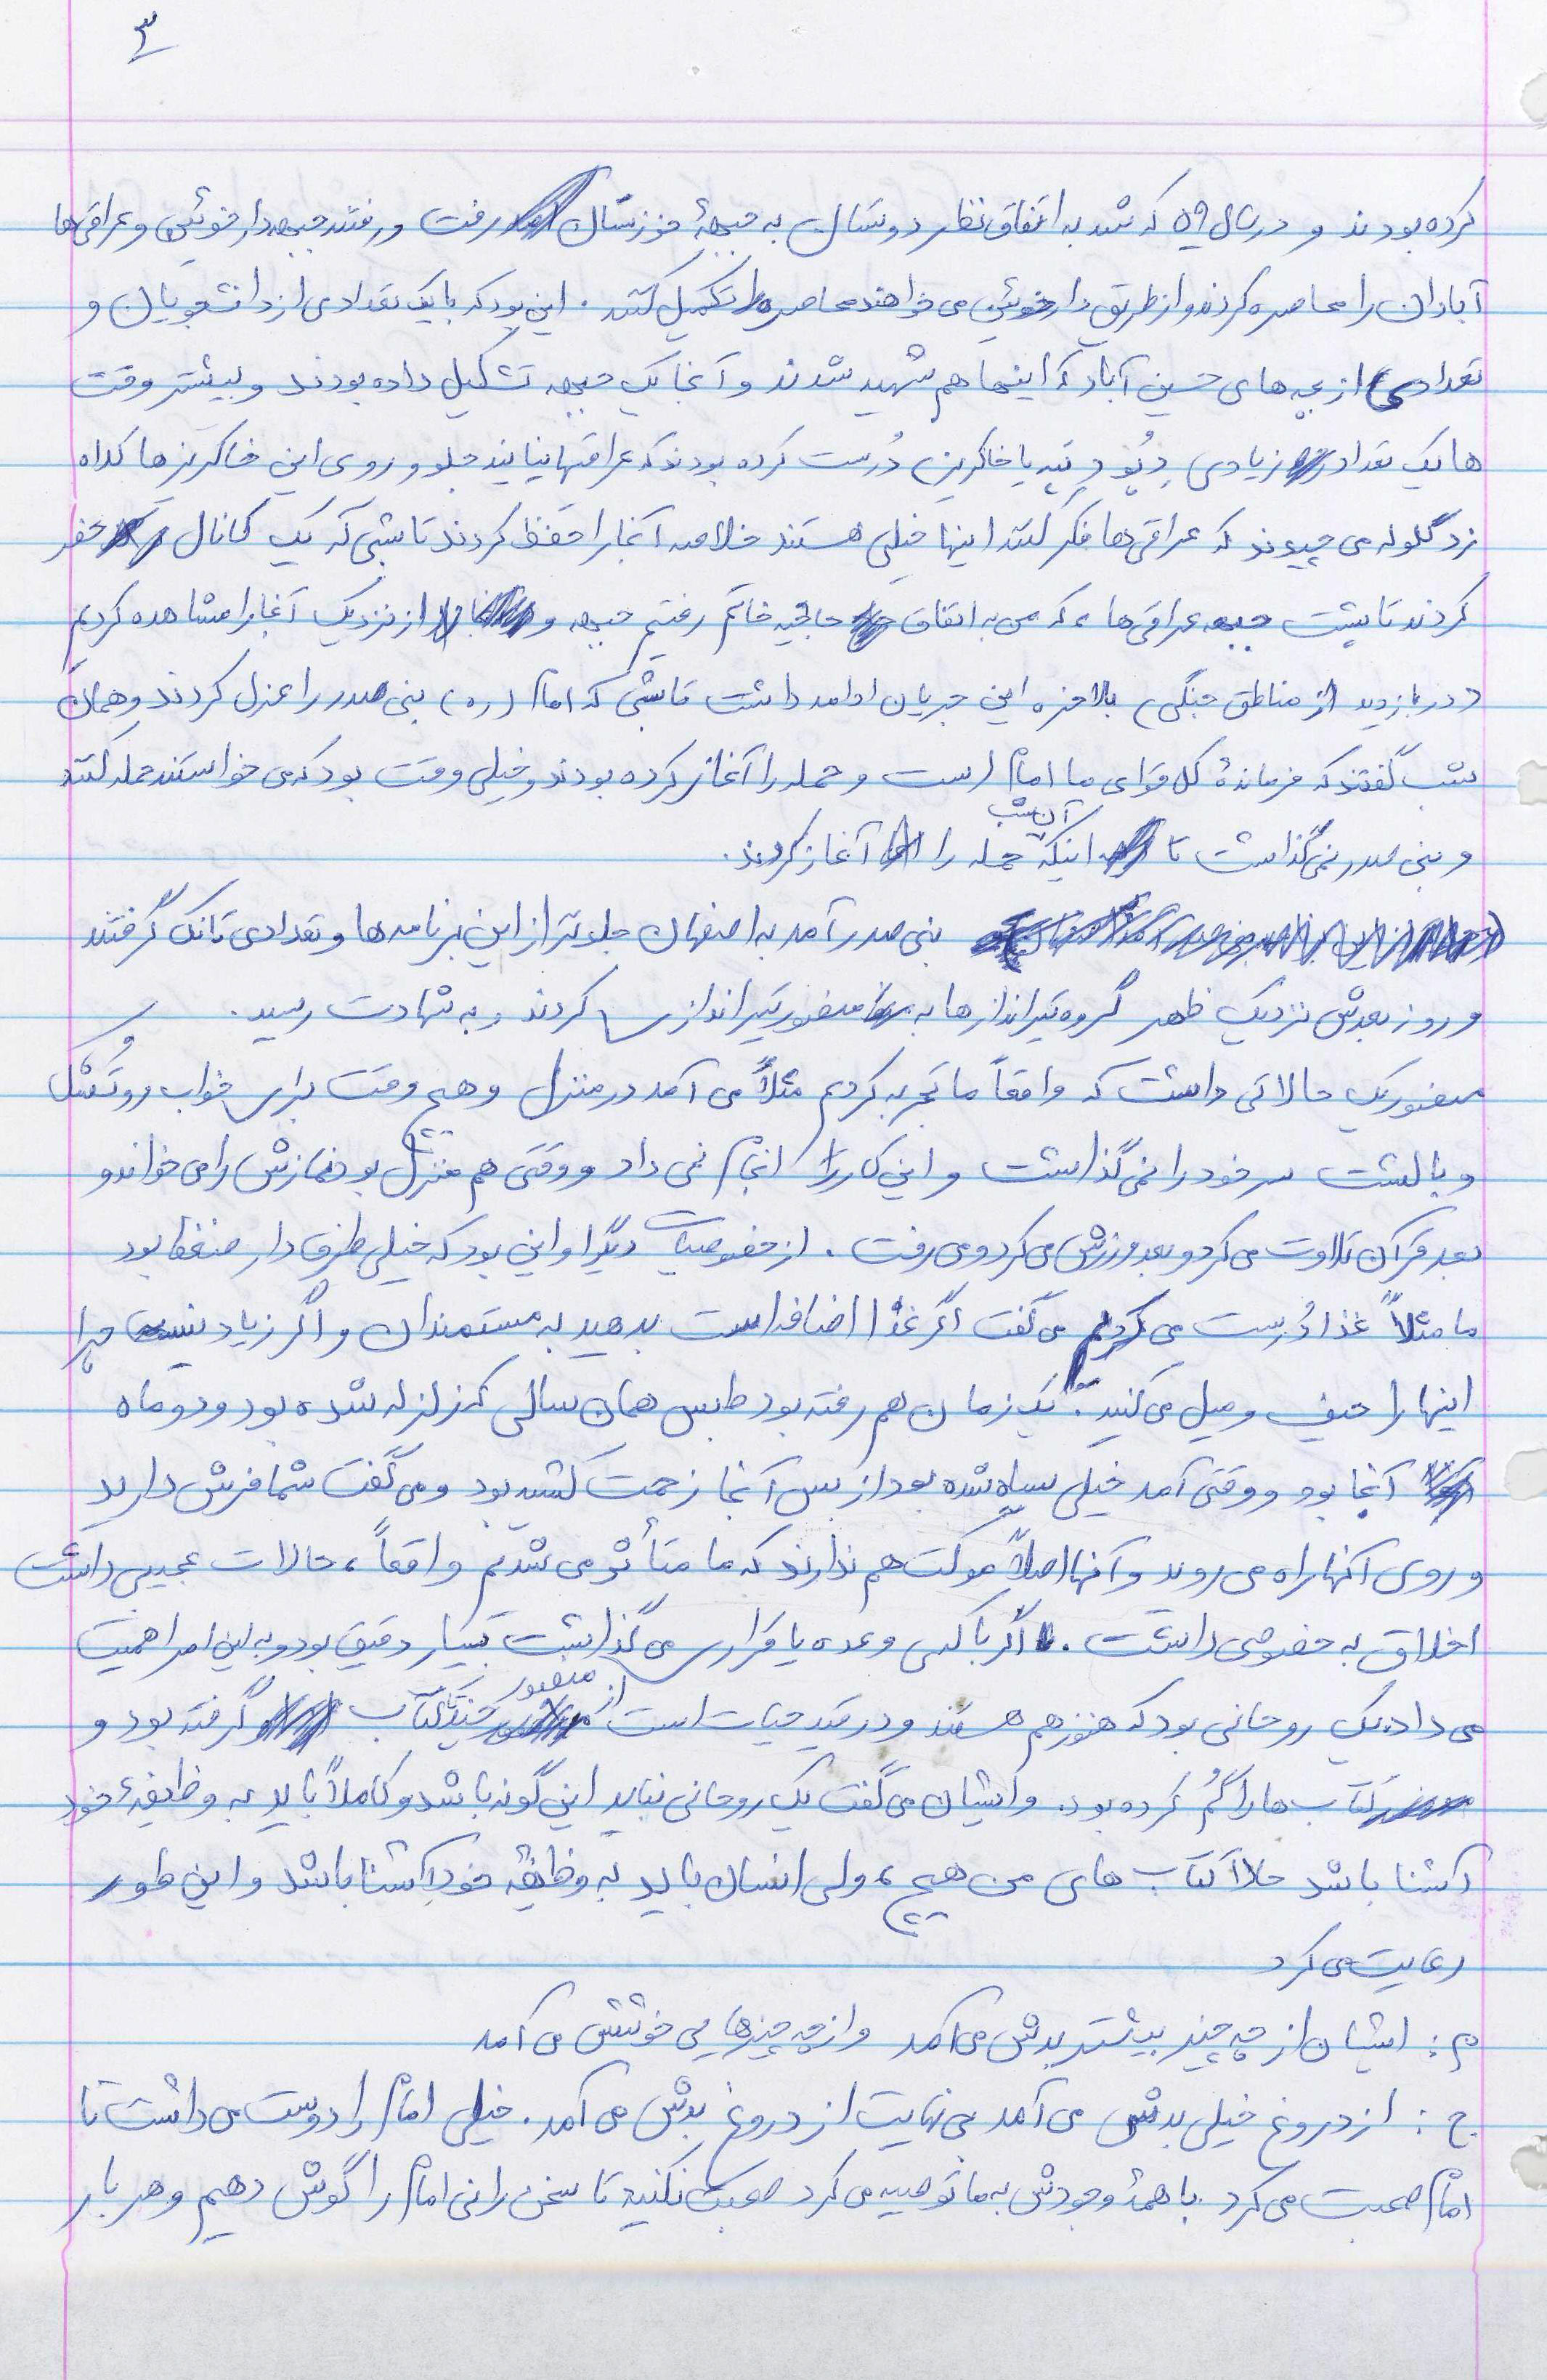 ۳
کرده بودند و در سال ۵۹ که شد به اتفاق نظر دوستان به جبههٔ خوزستان رفت و رفتند جبهه دارخوئین و عراقی ها
آبادان را محاصره کردند و از طریق دارخوئین می خواهند محاصره را تکمیل کنند. این بود که با یک تعدادی از دانشجویان و
تعدادی از بچه های حسین آباد که اینها هم شهید شدند و آنجا یک جبهه تشکیل داده بودند و بیشتر وقت
ها یک تعداد زیادی و تپه یا خاکریز، دُرست کرده بودند که عراقیها نیایند جلو و روی این خاکریزها کلاه
زد گلوله می چیدند که عراقی ها فکر کنند اینها خیلی هستند خلاصه آنجا را حفظ کردند تا شبی که یک کانال حفر
کردند تا پشت جبهه عراقی ها، که من به اتفاق حاجیه خانم رفتیم جبهه و از نزدیک آنجا را مشاهده کردیم
(در بازدید از مناطق جنگی) بالاخره این جریان ادامه داشت تا شبی که امام (ره) بنی صدر را عزل کردند و همان
شب گفتند که فرماندهٔ کل قوای ما امام است و حمله را آغاز کرده بودند و خیلی وقت بود که می خواستند حمله کنند
و بنی صدر نمی گذاشت تا اینکه آن شب حمله را آغاز کردند.
بنی صدر آمد به اصفهان جلوتر از این برنامه ها و تعدادی تانک گرفتند
و روز بعدش نزدیک ظهر گروه تیراندازها به منصور تیراندازی کردند و به شهادت رسید.
منصور یک حالاتی داشت که واقعاً ما تجربه کردیم مثلاً می آمد در منزل و هیچ وقت برای خواب روتشک
و بالشت سر خود را نمی گذاشت و این کار را انجام نمی داد و وقتی هم منزل بود نمازش را می خواند و
بعد قرآن تلاوت می کرد و بعد ورزش می کرد و می رفت. از خصوصیات دیگر او این بود که خیلی طرف دار ضعفا بود
ما مثلاً غذا دُرست می کردیم می گفت اگر غذا اضافه است بدهید به مستمندان و اگر زیاد نیست چرا
اینها را حیف و میل می کنید. یک زمان هم رفته بود طبس همان سالی که زلزله شده بود و دو ماه
آنجا بود و وقتی آمد خیلی سیاه شده بود از بس آنجا زحمت کشیده بود و می گفت شما فرش دارید
و روی آنها راه می روید و آنها اصلاً موکت هم ندارند که ما متأثر می شدیم واقعاً، حالات عجیبی داشت
اخلاق به خصوصی داشت. اگر با کسی وعده یا قراری می گذاشت بسیار دقیق بود و به این امر اهمیت
می داد. یک روحانی بود که هنوز هم هستند و در قید حیات است از منصور چندتا کتاب گرفته بود و
کتاب ها را گُم کرده بود. و ایشان می گفت یک روحانی نباید این گونه باشد و کاملاً باید به وظیفهٔ خود
آشنا باشد حالا کتاب های من هیچ، ولی انسان باید به وظیفه خود آشنا باشد و این طور
رعایت می کرد
م: ایشان از چه چیز بیشتر بدش می آمد و از چه چیزهایی خوشش می آمد
ج: از دروغ خیلی بدش می آمد بی نهایت از دروغ بدش می آمد. خیلی امام را دوست می داشت تا
امام صحبت می کرد با همهٔ وجودش به ما توصیه می کرد صحبت نکنید تا سخن رانی امام را گوش دهیم و هر بار